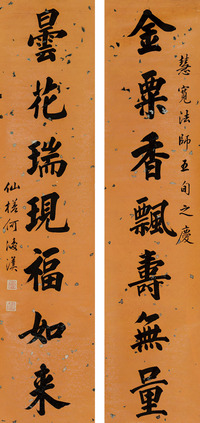 慧寬法師五旬之慶
金粟香飄壽無量
曇花瑞現福如来
仙槎何海漢